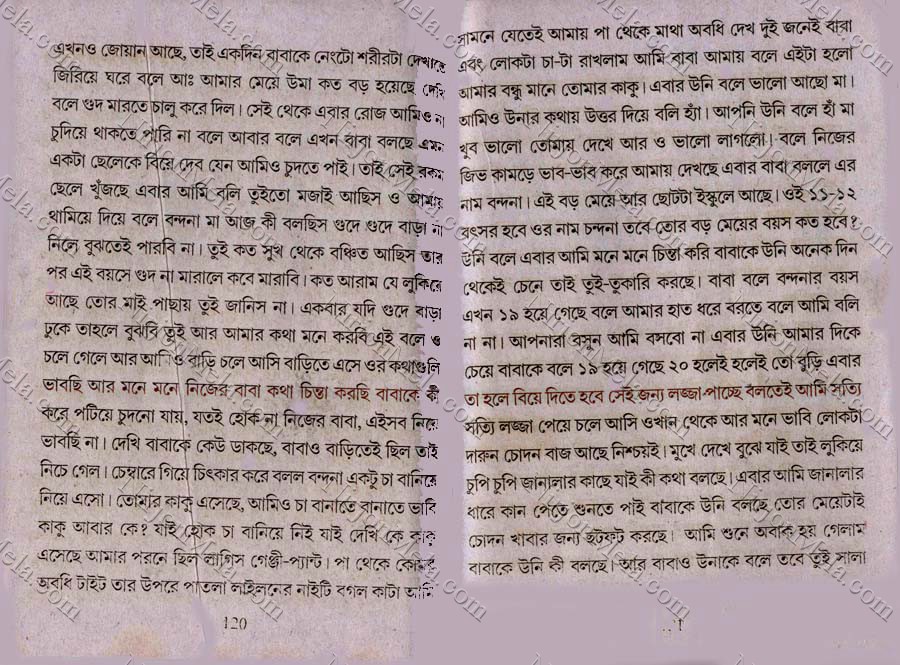 এখনও জোয়ান আছে, তাই একদিন বাবাকে নেংটো শরীরটা দেখাতে
জিরিয়ে ঘরে বলে আঃ আমার মেয়ে উমা কত বড় হয়েছে দেখি
বলে গুদ মারতে চালু করে দিল। সেই থেকে এবার রোজ আমিও না
চুদিয়ে থাকতে পারি না বলে আবার বলে এখন বাবা বলছে এমন
একটা ছেলেকে বিয়ে দেব যেন আমিও চুদতে পাই। তাই সেই রকম
ছেলে খুঁজছে এবার আমি বলি তুইতো মজাই আছিস ও আমায়
থামিয়ে দিয়ে বলে বন্দনা মা আজ কী বলছিস গুদে গুদে বাড়া না
নিলে বুঝতেই পারবি না। তুই কত সুখ থেকে বঞ্চিত আছিস তার
পর এই বয়সে গুদ না মারালে কবে মারাবি। কত আরাম যে লুকিয়ে
আছে তোর মাই পাছায় তুই জানিস না। একবার যদি গুদে বাড়া
ঢুকে তাহলে বুঝবি তুই আর আমার কথা মনে করবি এই বলে ও
চলে গেলে আর আমিও বাড়ি চলে আসি বাড়িতে এসে ওর কথাগুলি
ভাবছি আর মনে মনে নিজের বাবা কথা চিন্তা করছি বাবাকে কী
করে পটিয়ে চুদনো যায়, যতই হোক না নিজের বাবা, এইসব নিয়ে
ভাবছি না। দেখি বাবাকে কেউ ডাকছে, বাবাও বাড়িতেই ছিল তাই
নিচে গেল। চেম্বারে গিয়ে চিৎকার করে বলল বন্দনা একটু চা বানিয়ে
নিয়ে এসো। তোমার কাকু এসেছে, আমিও চা বানাতে বানাতে ভাবি
কাকু আবার কে? যাই হোক চা বানিয়ে নিই যাই দেখি কে কাকু
এসেছে আমার পরনে ছিল লাগিস গেঞ্জী-প্যান্ট। পা থেকে কোমর
অবধি টাইট তার উপরে পাতলা লাইলনের নাইটি বগল কাটা আমি
120
সামনে যেতেই আমায় পা থেকে মাথা অবধি দেখ দুই জনেই বাবা
এবং লোকটা চা-টা রাখলাম আমি বাবা আমায় বলে এইটা হলো
আমার বন্ধু মানে তোমার কাকু। এবার উনি বলে ভালো আছো মা।
আমিও উনার কথায় উত্তর দিয়ে বলি হ্যাঁ। আপনি উনি বলে হাঁ মা
খুব ভালো তোমায় দেখে আর ও ভালো লাগলো। বলে নিজের
জিভ কামড়ে ভাব-ভাব করে আমায় দেখছে এবার বাবা বললে এর
নাম বন্দনা। এই বড় মেয়ে আর ছোটটা ইস্কুলে আছে। ওই ১১-১২
বৎসর হবে ওর নাম চন্দনা তবে তোর বড় মেয়ের বয়স কত হবে?
উনি বলে এবার আমি মনে মনে চিন্তা করি বাবাকে উনি অনেক দিন
থেকেই চেনে তাই তুই-তুকারি করছে। বাবা বলে বন্দনার বয়স
এখন ১৯ হয়ে গেছে বলে আমার হাত ধরে বরতে বলে আমি বলি
না না। আপনারা বসুন আমি বসবো না এবার উনি আমার দিকে
চেয়ে বাবাকে বলে ১৯ হয়ে গেছে ২০ হলেই হলেই তো বুড়ি এবার
তা হলে বিয়ে দিতে হবে সেই জন্য লজ্জা পাচ্ছে বলতেই আমি সত্যি
সত্যি লজ্জা পেয়ে চলে আসি ওখান থেকে আর মনে ভাবি লোকটা
দারুন চোদন বাজ আছে নিশ্চয়ই। মুখে দেখে বুঝে যাই তাই লুকিয়ে
চুপি চুপি জানালার কাছে যাই কী কথা বলছে। এবার আমি জানালার
ধারে কান পেতে শুনতে পাই বাবাকে উনি বলছে তোর মেয়েটাই
চোদন খাবার জন্য ছটফট করছে। আমি শুনে অবাক হয় গেলাম
বাবাকে উনি কী বলছে। আর বাবাও উনাকে বলে তবে তুই সালা